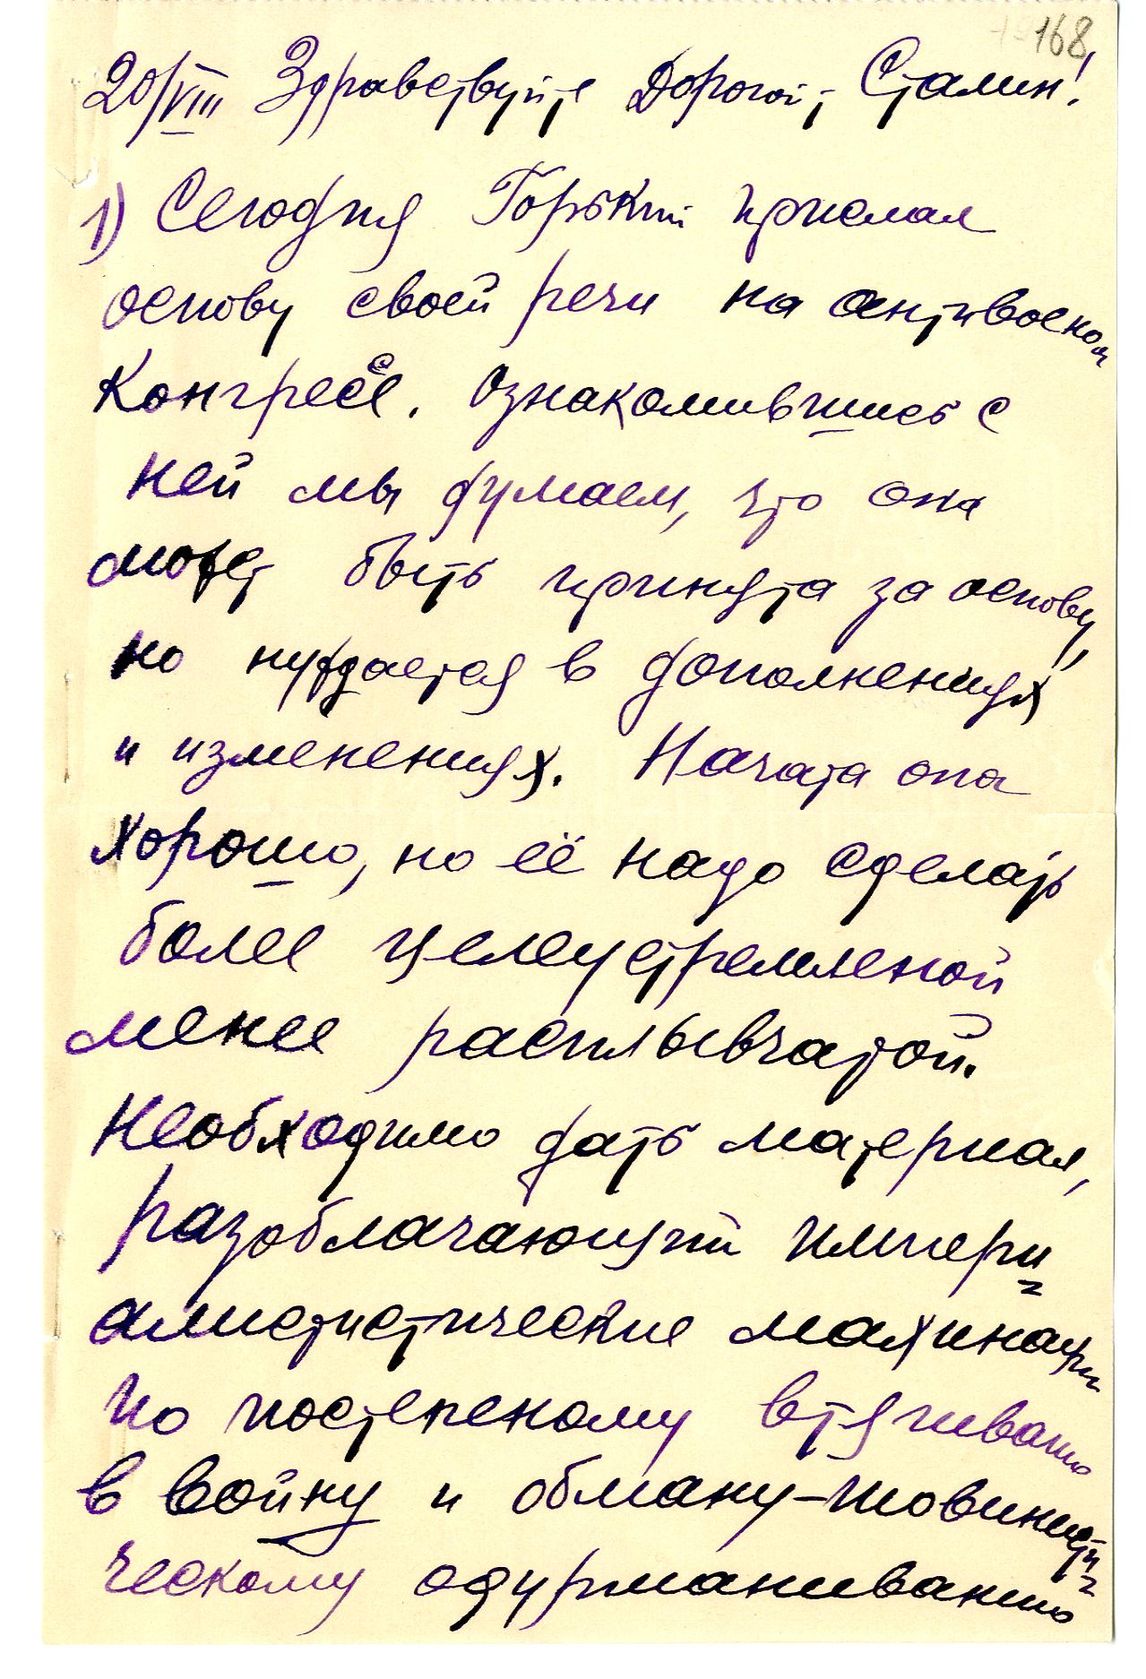 168
20/VIII Здравствуйте Дорогой, Сталин!
1) Сегодня Горький прислал
основу своей речи на антивоеном
Конгрессе. Ознакомившись с
ней мы думаем, что она
может быть принята за основу,
но нуждается в дополнениях
и изменениях. Начата она
хорошо, но её надо сделать
более целеустремленой
менее расплывчатой.
Необходимо дать материал,
разоблачающий импери
алистистические махинации
по постепеному втягиванию
в войну и обману-шовинисти
ческому одурманиванию